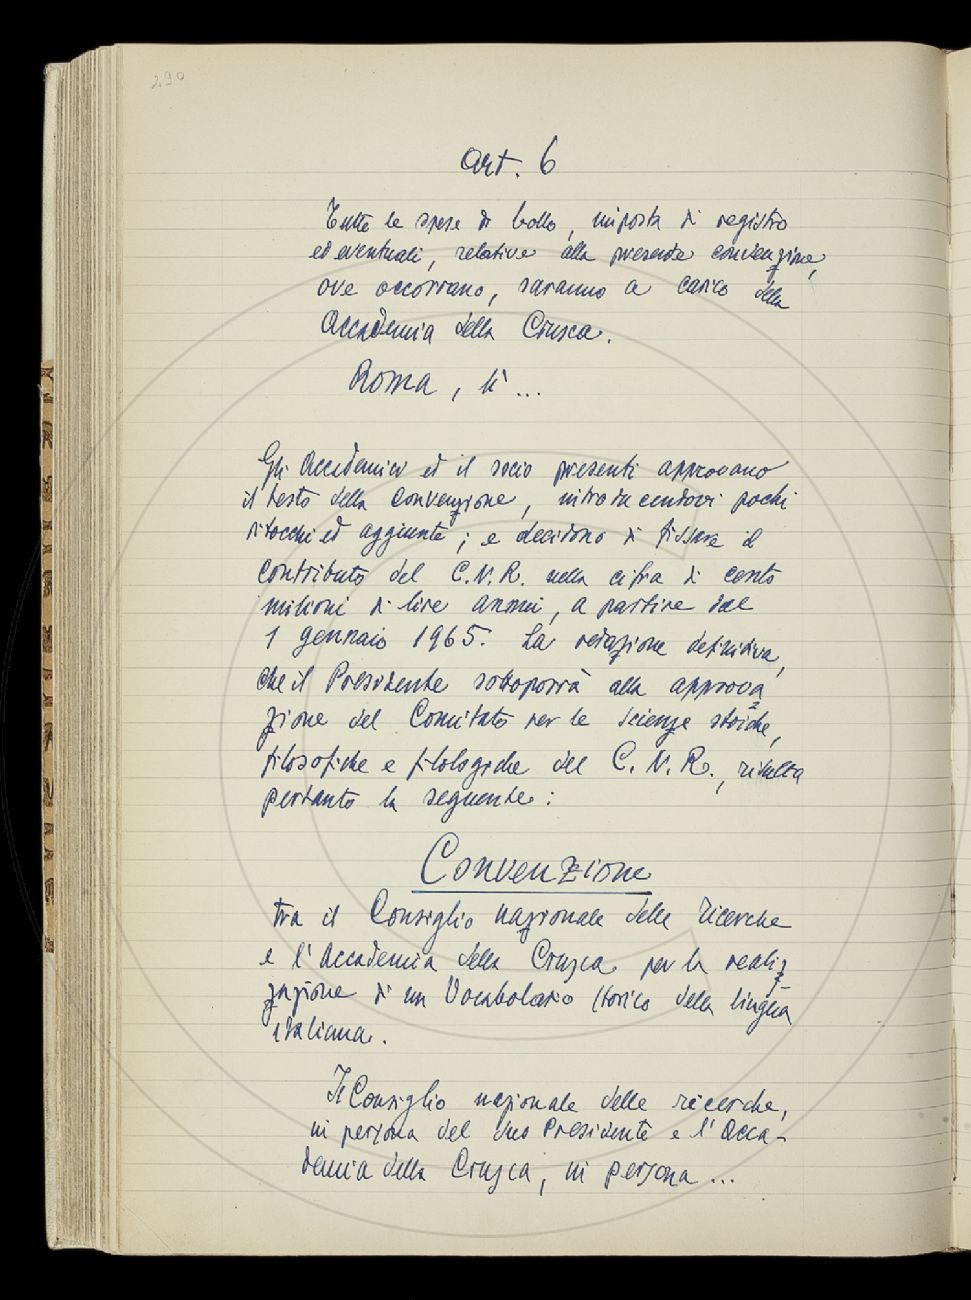 290
Art. 6
Tutte le spese di bollo, imposta di registro
ed eventuali, relative alla presente convenzione,
ove occorrano, saranno a carico della
Accademia della Crusca.
Roma, lì ...
Gli Accademici ed il socio presenti approvano
il testo della convenzione, introducendovi pochi
ritocchi ed aggiunte; e decidono di fissare il
contributo del C.N.R. nella cifra di cento
milioni di lire annui, a partire dal
1 gennaio 1965. La redazione definitiva,
che il Presidente sottoporrà alla approva
zione del Comitato per le scienze storiche,
filosofiche e filologiche del C.N.R., risulta
pertanto la seguente:
Convenzione
tra il Consiglio nazionale delle ricerche
e l'Accademia della Crusca per la realiz-
zazione di un Vocabolario storico della lingua
italiana.
Il Consiglio nazionale delle ricerche,
in persona del suo Presidente e l'Acca-
demia della Crusca, in persona ...